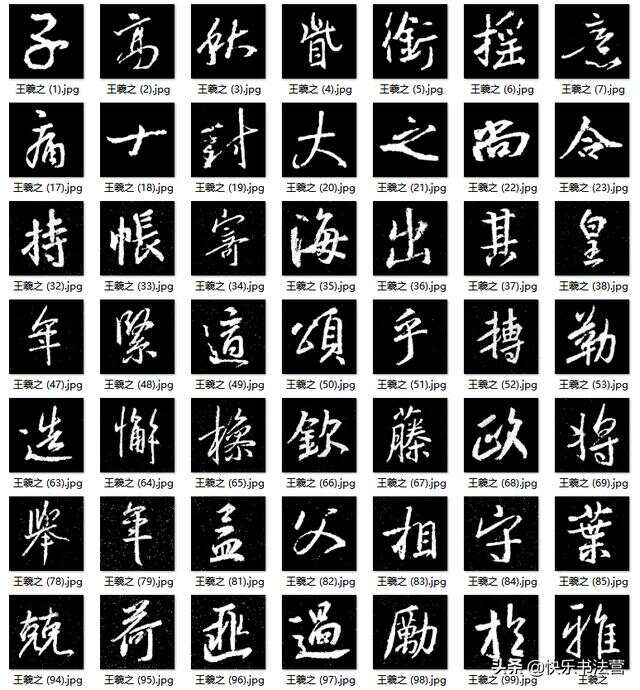 子 高 秋 銜 搖 意
王羲之 (1).jpg 王羲之 (2).jpg 王羲之 (3).jpg 王羲之 (4).jpg 王羲之 (5).jpg 王羲之 (6).jpg 王羲之 (7).jpg
痛 士 對 大 之 尚 令
王羲之 (17).jpg 王羲之 (18).jpg 王羲之 (19).jpg 王羲之 (20).jpg 王羲之 (21).jpg 王羲之 (22).jpg 王羲之 (23).jpg
持 帳 寄 海 出 其 皇
王羲之 (32).jpg 王羲之 (33).jpg 王羲之 (34).jpg 王羲之 (35).jpg 王羲之 (36).jpg 王羲之 (37).jpg 王羲之 (38).jpg
年 緊 頌 乎 勒
王羲之 (47).jpg 王羲之 (48).jpg 王羲之 (49).jpg 王羲之 (50).jpg 王羲之 (51).jpg 王羲之 (52).jpg 王羲之 (53).jpg
造 懈 欽 藤 政 將
王羲之 (63).jpg 王羲之 (64).jpg 王羲之 (65).jpg 王羲之 (66).jpg 王羲之 (67).jpg 王羲之 (68).jpg 王羲之 (69).jpg
舉 年 孟 父 相 守 葉
王羲之 (78).jpg 王羲之 (79).jpg 王羲之 (81).jpg 王羲之 (82).jpg 王羲之 (83).jpg 王羲之 (84).jpg 王羲之 (85).jpg
兢 荷 過 勵 於 雅
王羲之 (94).jpg 王羲之 (95).jpg 王羲之 (96).jpg 王羲之 (97).jpg 王羲之 (98).jpg 王羲之 (99).jpg 王羲之
头条 @快乐书法营